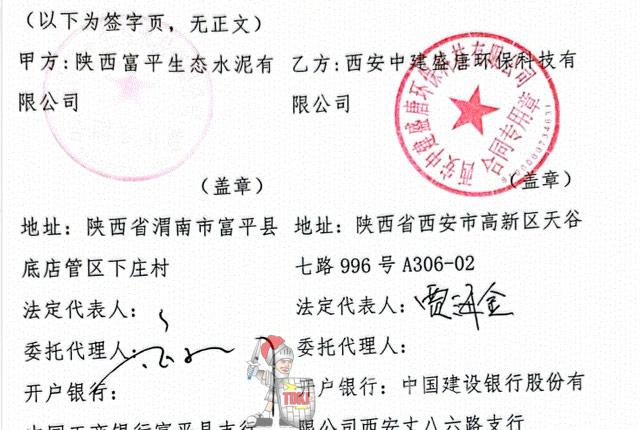 （以下为签字页，无正文）
甲方：陕西富平生态水泥有
限公司
（盖章）
地址：陕西省渭南市富平县
底店管区下庄村
法定代表人：
委托代理人：
开户银行：
中国工商银行富平县支行
乙方：西安中建盛唐环保科技有
限公司
西安中建盛唐环保科技有限公司
合同专用章
（盖章）
地址：陕西省西安市高新区天谷
七路996号A306-02
法定代表人：
委托代理人：
开户银行：中国建设银行股份有
限公司西安丈八六路支行